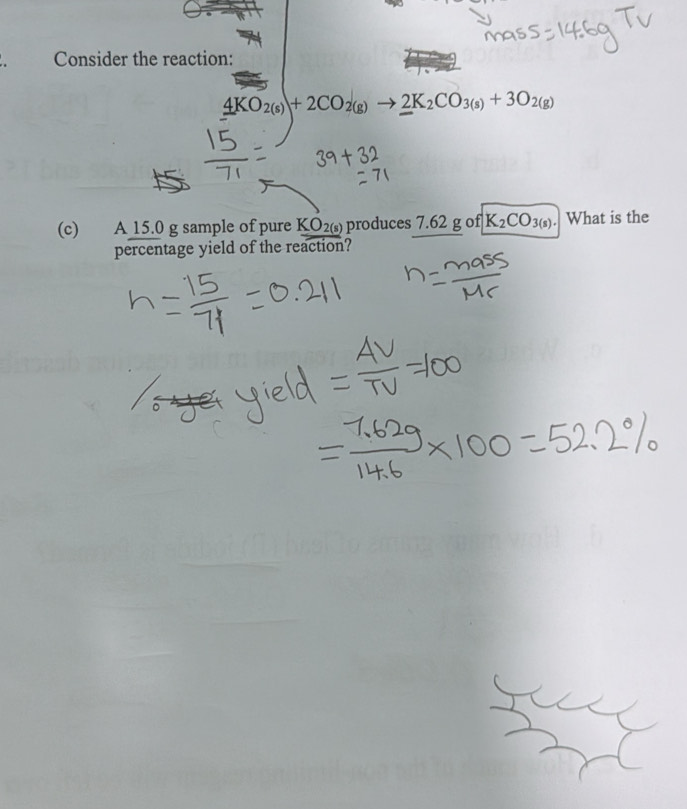 mass=14.6g TV
Consider the reaction:
4KO2(s) + 2CO2(g) → 2K2CO3(s) + 3O2(g)
15/71 =
39 + 32
= 71
(c) A 15.0 g sample of pure KO2(s) produces 7.62 g of K2CO3(s). What is the
percentage yield of the reaction?
n = 15/71 = 0.211
n = mass/Mr
% yield = AV/TV = 100
= 7.62g/14.6 × 100 = 52.2%